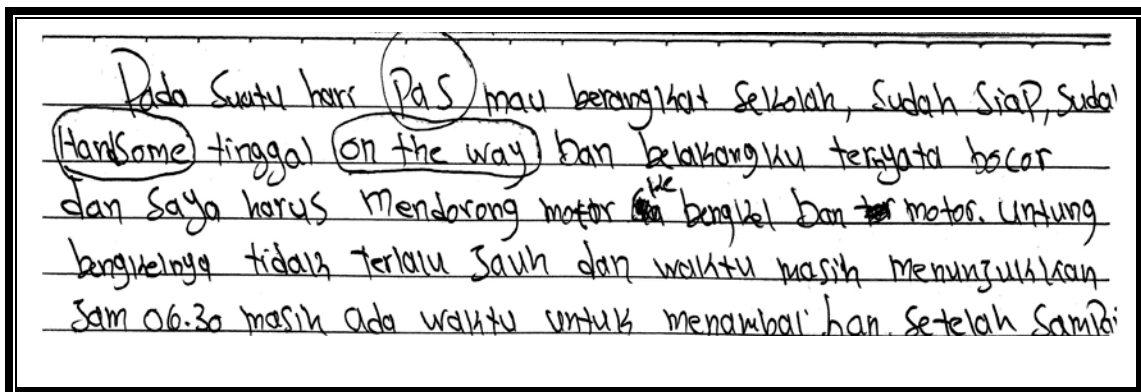 Pada suatu hari Pas mau berangkat sekolah, sudah siap, suda
Handsome tinggal on the way ban belakangku ternyata bocor
dan saya harus mendorong motor ke bengkel ban motor. untung
bengkelnya tidak terlalu jauh dan waktu masih menunjukkan
jam 06.30 masih ada waktu untuk menambal ban. setelah sampai